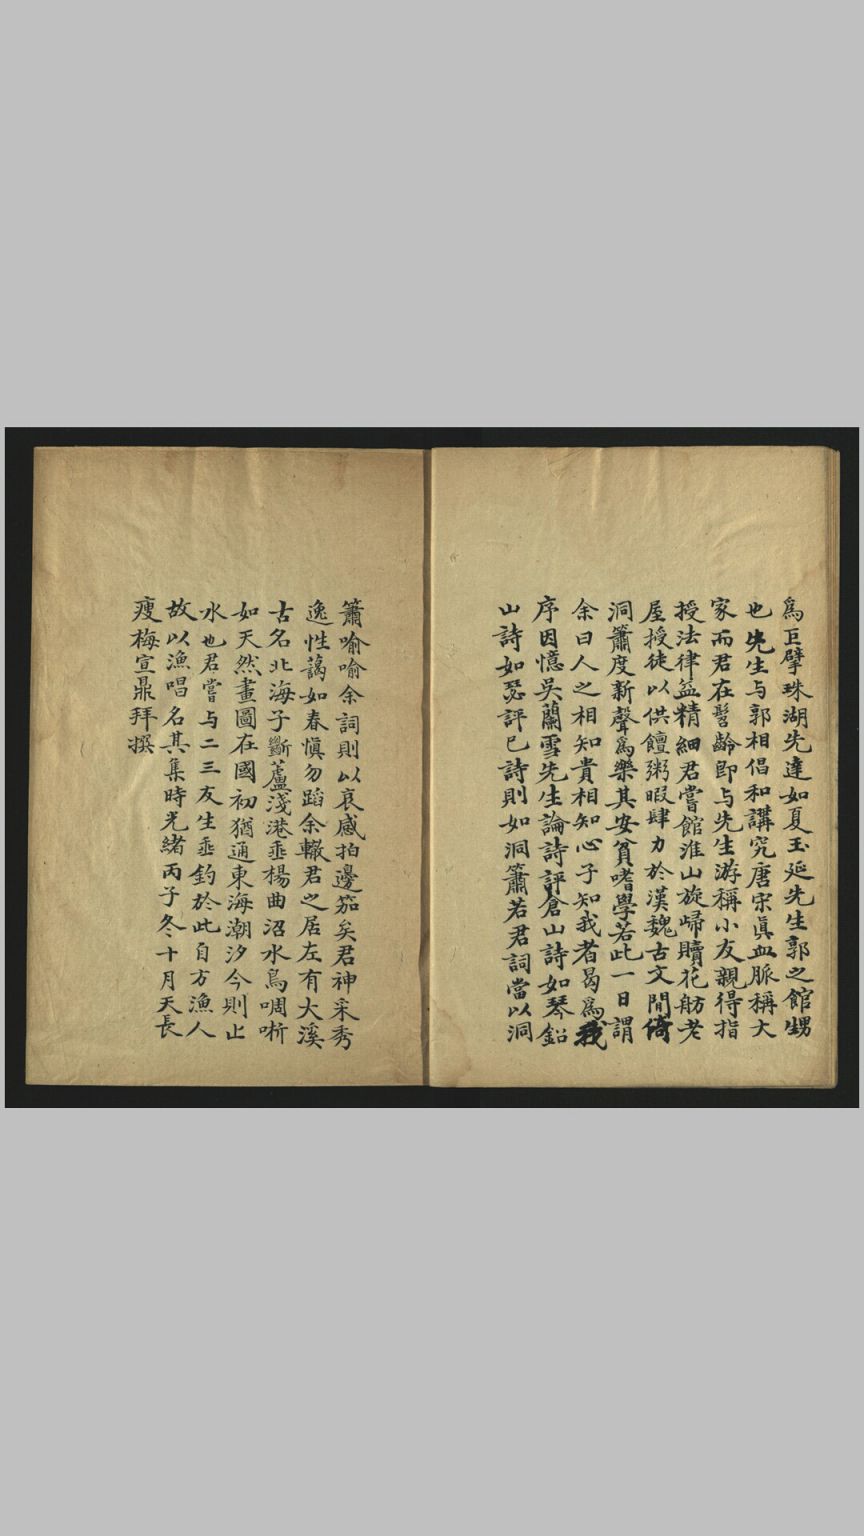 為巨擘珠湖先達如夏玉延先生郭之館甥
也先生与郭相倡和講究唐宋眞血脈稱大
家而君在髫齡即与先生游稱小友親得指
授法律益精細君嘗館淮山旋歸贖花舫老
屋授徒以供饘粥暇肆力於漢魏古文閒倚
洞簫度新聲為樂其安貧嗜學若此一日謂
余曰人之相知貴相知心子知我者曷為我
序因憶吳蘭雪先生論詩評倉山詩如琴鉛
山詩如瑟評已詩則如洞簫若君詞當以洞
簫喻喻余詞則以哀感拍邊笳矣君神采秀
逸性藹如春愼勿蹈余轍君之居左有大溪
古名北海子斷蘆淺港垂楊曲沼水鳥啁哳
如天然畫圖在國初猶通東海潮汐今則止
水也君嘗与二三友生垂釣於此自方漁人
故以漁唱名其集時光緒丙子冬十月天長
瘦梅宣鼎拜撰